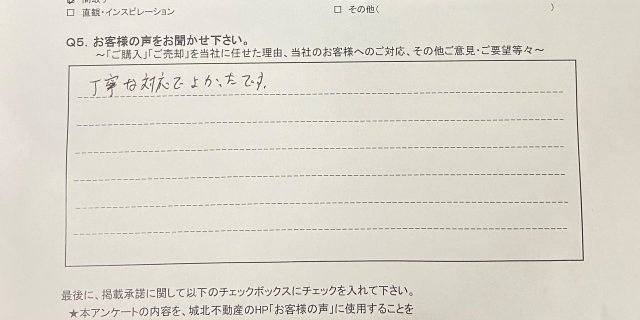 □ 直観・インスピレーション □ その他( )
Q5. お客様の声をお聞かせ下さい。
~「ご購入」「ご売却」を当社に任せた理由、当社のお客様へのご対応、その他ご意見・ご要望等々~
丁寧な対応でよかったです。
最後に、掲載承諾に関して以下のチェックボックスにチェックを入れて下さい。
★本アンケートの内容を、城北不動産のHP「お客様の声」に使用することを